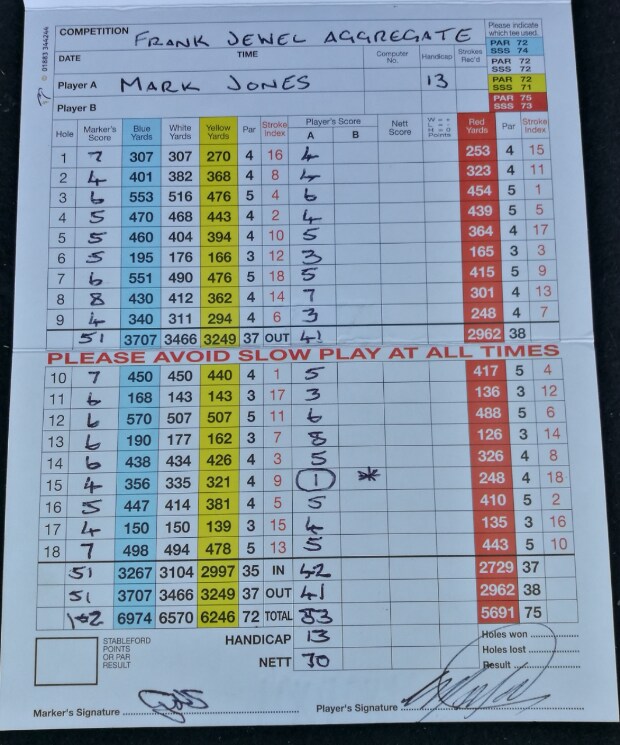 01883 344244
COMPETITION FRANK JEWEL AGGREGATE Please indicate which tee used.
DATE TIME Computer No. Handicap Strokes Rec'd PAR 72 SSS 74
PAR 72 SSS 72
Player A MARK JONES 13 PAR 72 SSS 71
Player B PAR 75 SSS 73
Hole Marker's Score Blue Yards White Yards Yellow Yards Par Stroke Index Player's Score A B Nett Score W = + L = - H = 0 Points Red Yards Par Stroke Index
1 7 307 307 270 4 16 4 253 4 15
2 4 401 382 368 4 8 4 323 4 11
3 6 553 516 476 5 4 6 454 5 1
4 5 470 468 443 4 2 4 439 5 5
5 5 460 404 394 4 10 5 364 4 17
6 5 195 176 166 3 12 3 165 3 3
7 6 551 490 476 5 18 5 415 5 9
8 8 430 412 362 4 14 7 301 4 13
9 4 340 311 294 4 6 3 248 4 7
51 3707 3466 3249 37 OUT 41 2962 38
PLEASE AVOID SLOW PLAY AT ALL TIMES
10 7 450 450 440 4 1 5 417 5 4
11 6 168 143 143 3 17 3 136 3 12
12 6 570 507 507 5 11 6 488 5 6
13 6 190 177 162 3 7 8 126 3 14
14 6 438 434 426 4 3 5 326 4 8
15 4 356 335 321 4 9 1 * 248 4 18
16 5 447 414 381 4 5 5 410 5 2
17 4 150 150 139 3 15 4 135 3 16
18 7 498 494 478 5 13 5 443 5 10
51 3267 3104 2997 35 IN 42 2729 37
51 3707 3466 3249 37 OUT 41 2962 38
102 6974 6570 6246 72 TOTAL 83 5691 75
STABLEFORD POINTS OR PAR RESULT HANDICAP 13 Holes won
Holes lost
NETT 70 Result
Marker's Signature Player's Signature